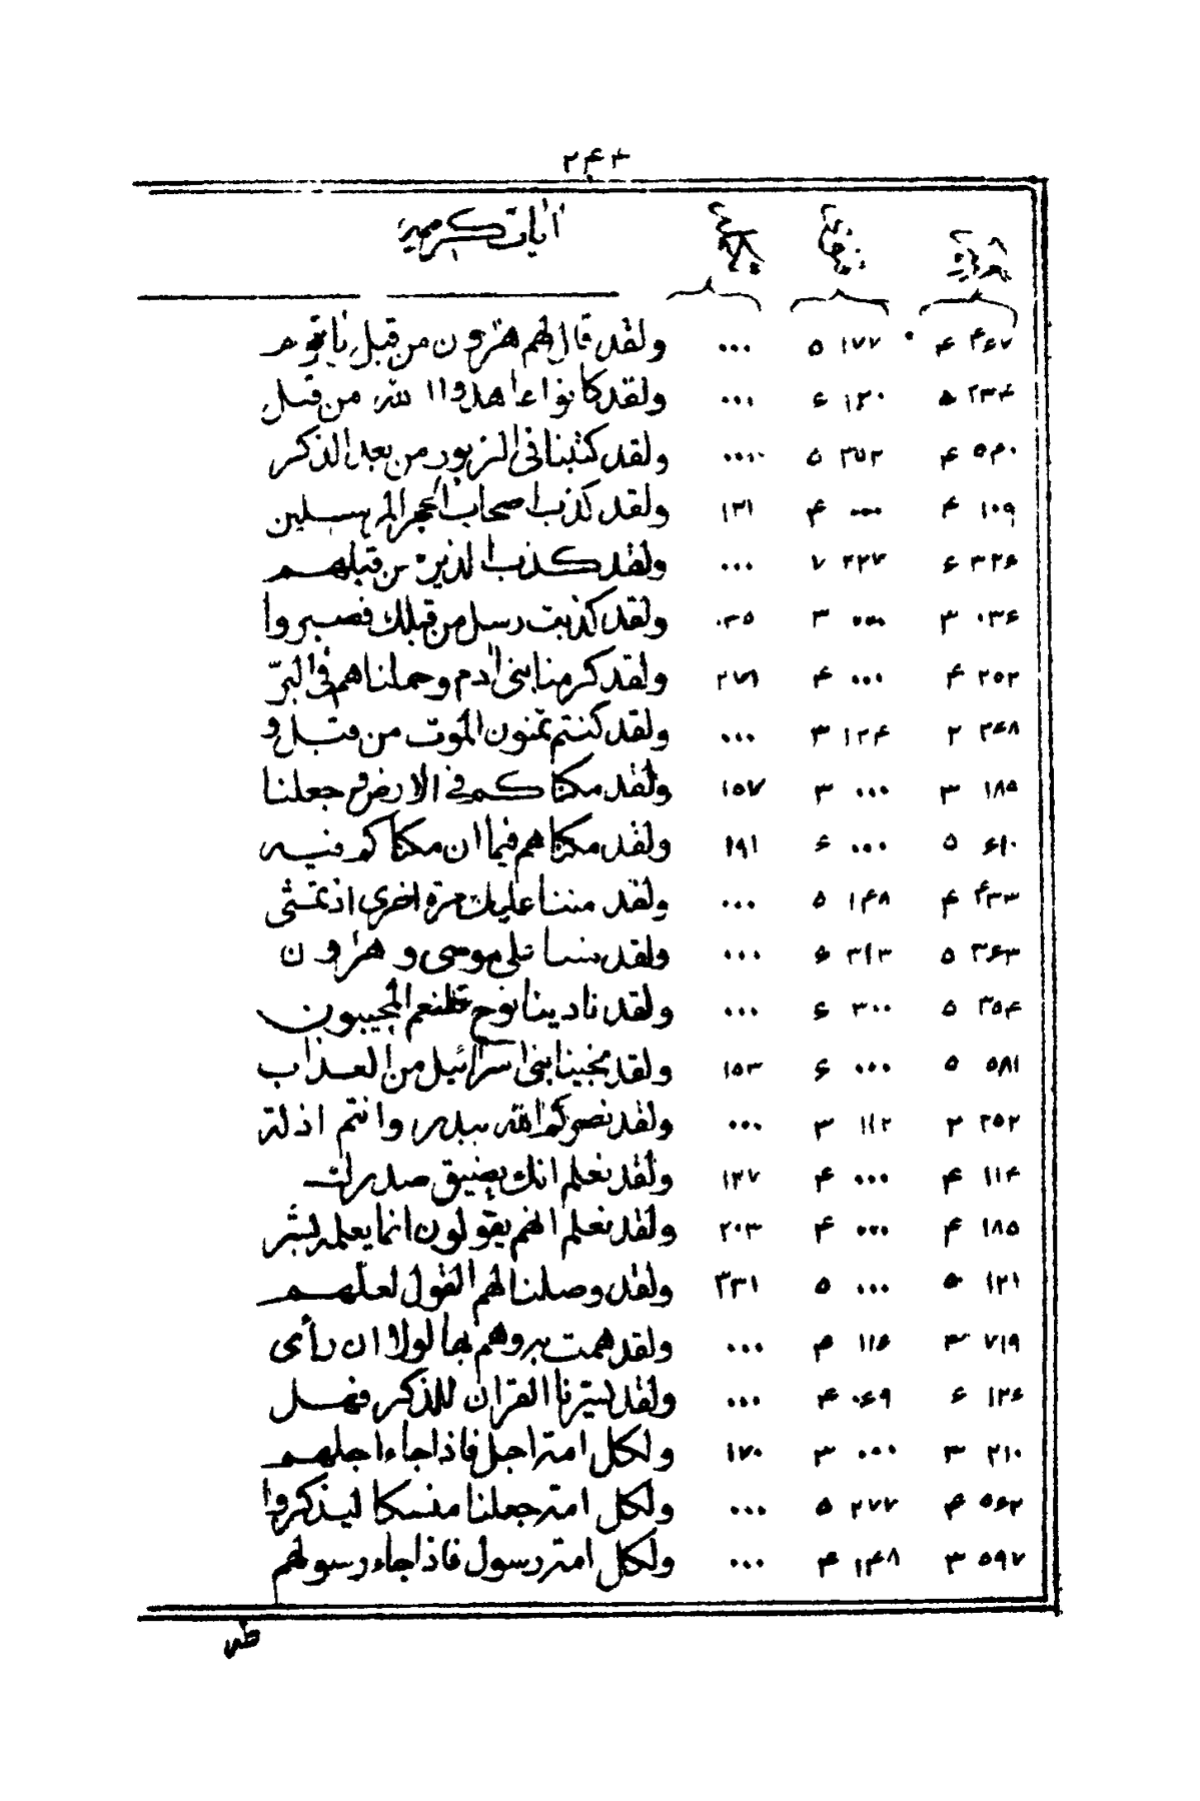 ۲۴۳
آیات کریمه
۴۶۷ ۴ ۱۷۷ ۵ ... ولقد قال لهم هرون من قبل یا قوم
۲۳۴ ۵ ۱۲۰ ۶ ... ولقد کانوا عاهدوا الله من قبل
۵۴۰ ۴ ۲۵۲ ۵ ... ولقد کتبنا فی الزبور من بعد الذکر
۱۰۹ ۴ ... ۴ ۱۳۱ ولقد کذب اصحاب الحجر المرسلین
۳۲۶ ۶ ۲۲۷ ۷ ... ولقد کذب الذین من قبلهم
۰۳۶ ۳ ... ۳ ۰۳۵ ولقد کذبت رسل من قبلک فصبروا
۲۵۲ ۴ ... ۴ ۲۷۱ ولقد کرمنا بنی ادم وحملناهم فی البرّ
۲۶۸ ۲ ۱۲۴ ۳ ... ولقد کنتم تمنون الموت من قبل و
۱۸۵ ۳ ... ۳ ۱۵۷ ولقد مکناکم فی الارض و جعلنا
۶۱۰ ۵ ... ۶ ۱۹۱ ولقد مکناهم فیما ان مکناکم فیه
۴۳۳ ۴ ۱۴۸ ۵ ... ولقد مننا علیک مرة اخری اذ تمشی
۳۶۳ ۵ ۳۱۳ ۶ ... ولقد مننا علی موسی و هرون
۳۵۴ ۵ ۳۰۰ ۶ ... ولقد نادینا نوح فلنعم المجیبون
۵۸۱ ۵ ... ۶ ۱۵۳ ولقد نجینا بنی اسرائیل من العذاب
۲۵۲ ۲ ۱۱۲ ۳ ... ولقد نصرکم الله ببدر وانتم اذلة
۱۱۴ ۴ ... ۴ ۱۳۷ ولقد نعلم انک یضیق صدرک
۱۸۵ ۴ ... ۴ ۲۰۳ ولقد نعلم انهم یقولون انما یعلمه بشر
۱۲۱ ۵ ... ۵ ۳۳۱ ولقد وصلنا لهم القول لعلّهم
۷۱۹ ۳ ۱۱۶ ۴ ... ولقد همت به وهم بها لولا ان رأی
۱۲۶ ۶ ۰۶۹ ۴ ... ولقد یسّرنا القران للذکر فهل
۲۱۰ ۳ ... ۳ ۱۷۰ ولکل امة اجل فاذا جاء اجلهم
۵۶۲ ۴ ۲۷۷ ۵ ... ولکل امة جعلنا منسکا لیذکروا
۵۹۷ ۳ ۱۴۸ ۴ ... ولکل امة رسول فاذا جاء رسولهم